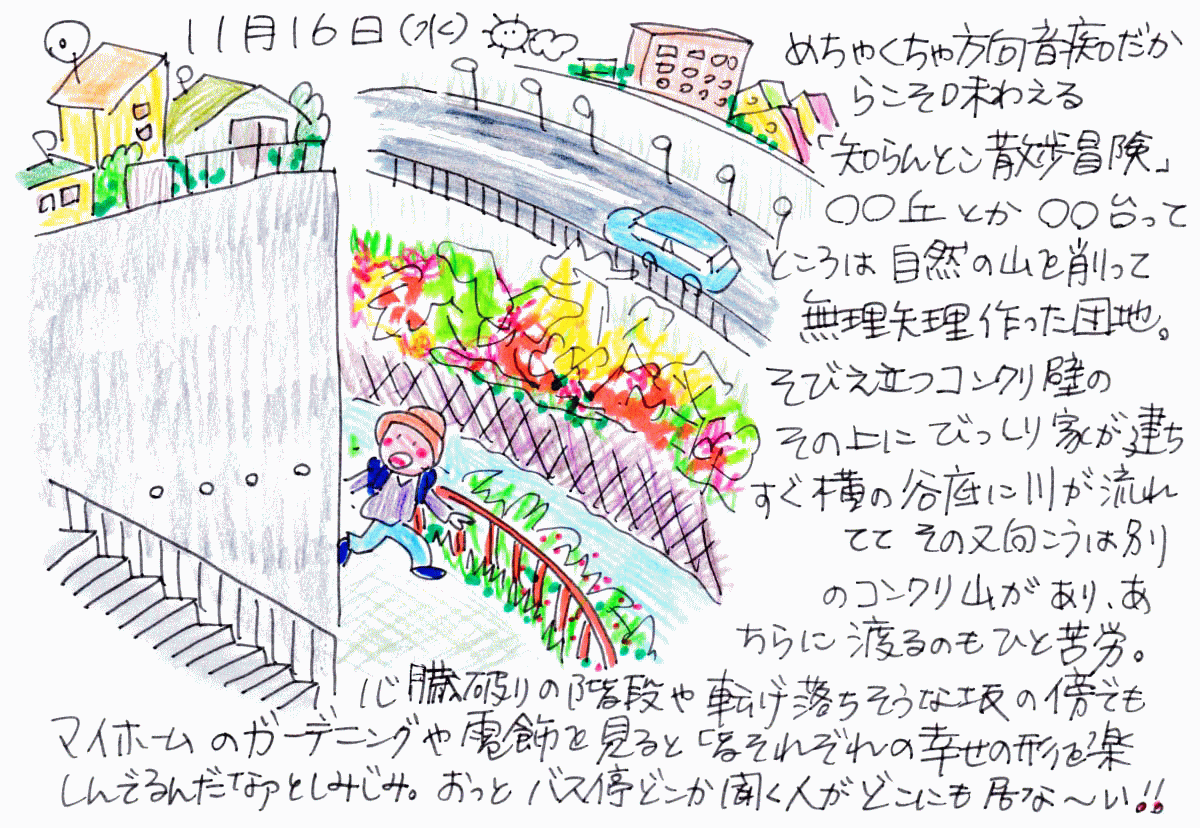 11月16日(水)
めちゃくちゃ方向音痴だか
らこそ味わえる
「知らんとこ散歩冒険」
〇〇丘とか〇〇台って
ところは自然の山を削って
無理矢理作った団地。
そびえ立つコンクリ壁の
その上にびっしり家が建ち
すぐ横の谷底に川が流れ
てて その又向こうは別
のコンクリ山があり、あ
ちらに渡るのもひと苦労。
心臓破りの階段や転げ落ちそうな坂の傍でも
マイホームのガーデニングや電飾を見ると「皆それぞれの幸せの形を楽
しんでるんだなァ」としみじみ。おっとバス停どこか聞く人がどこにも居な〜い!!